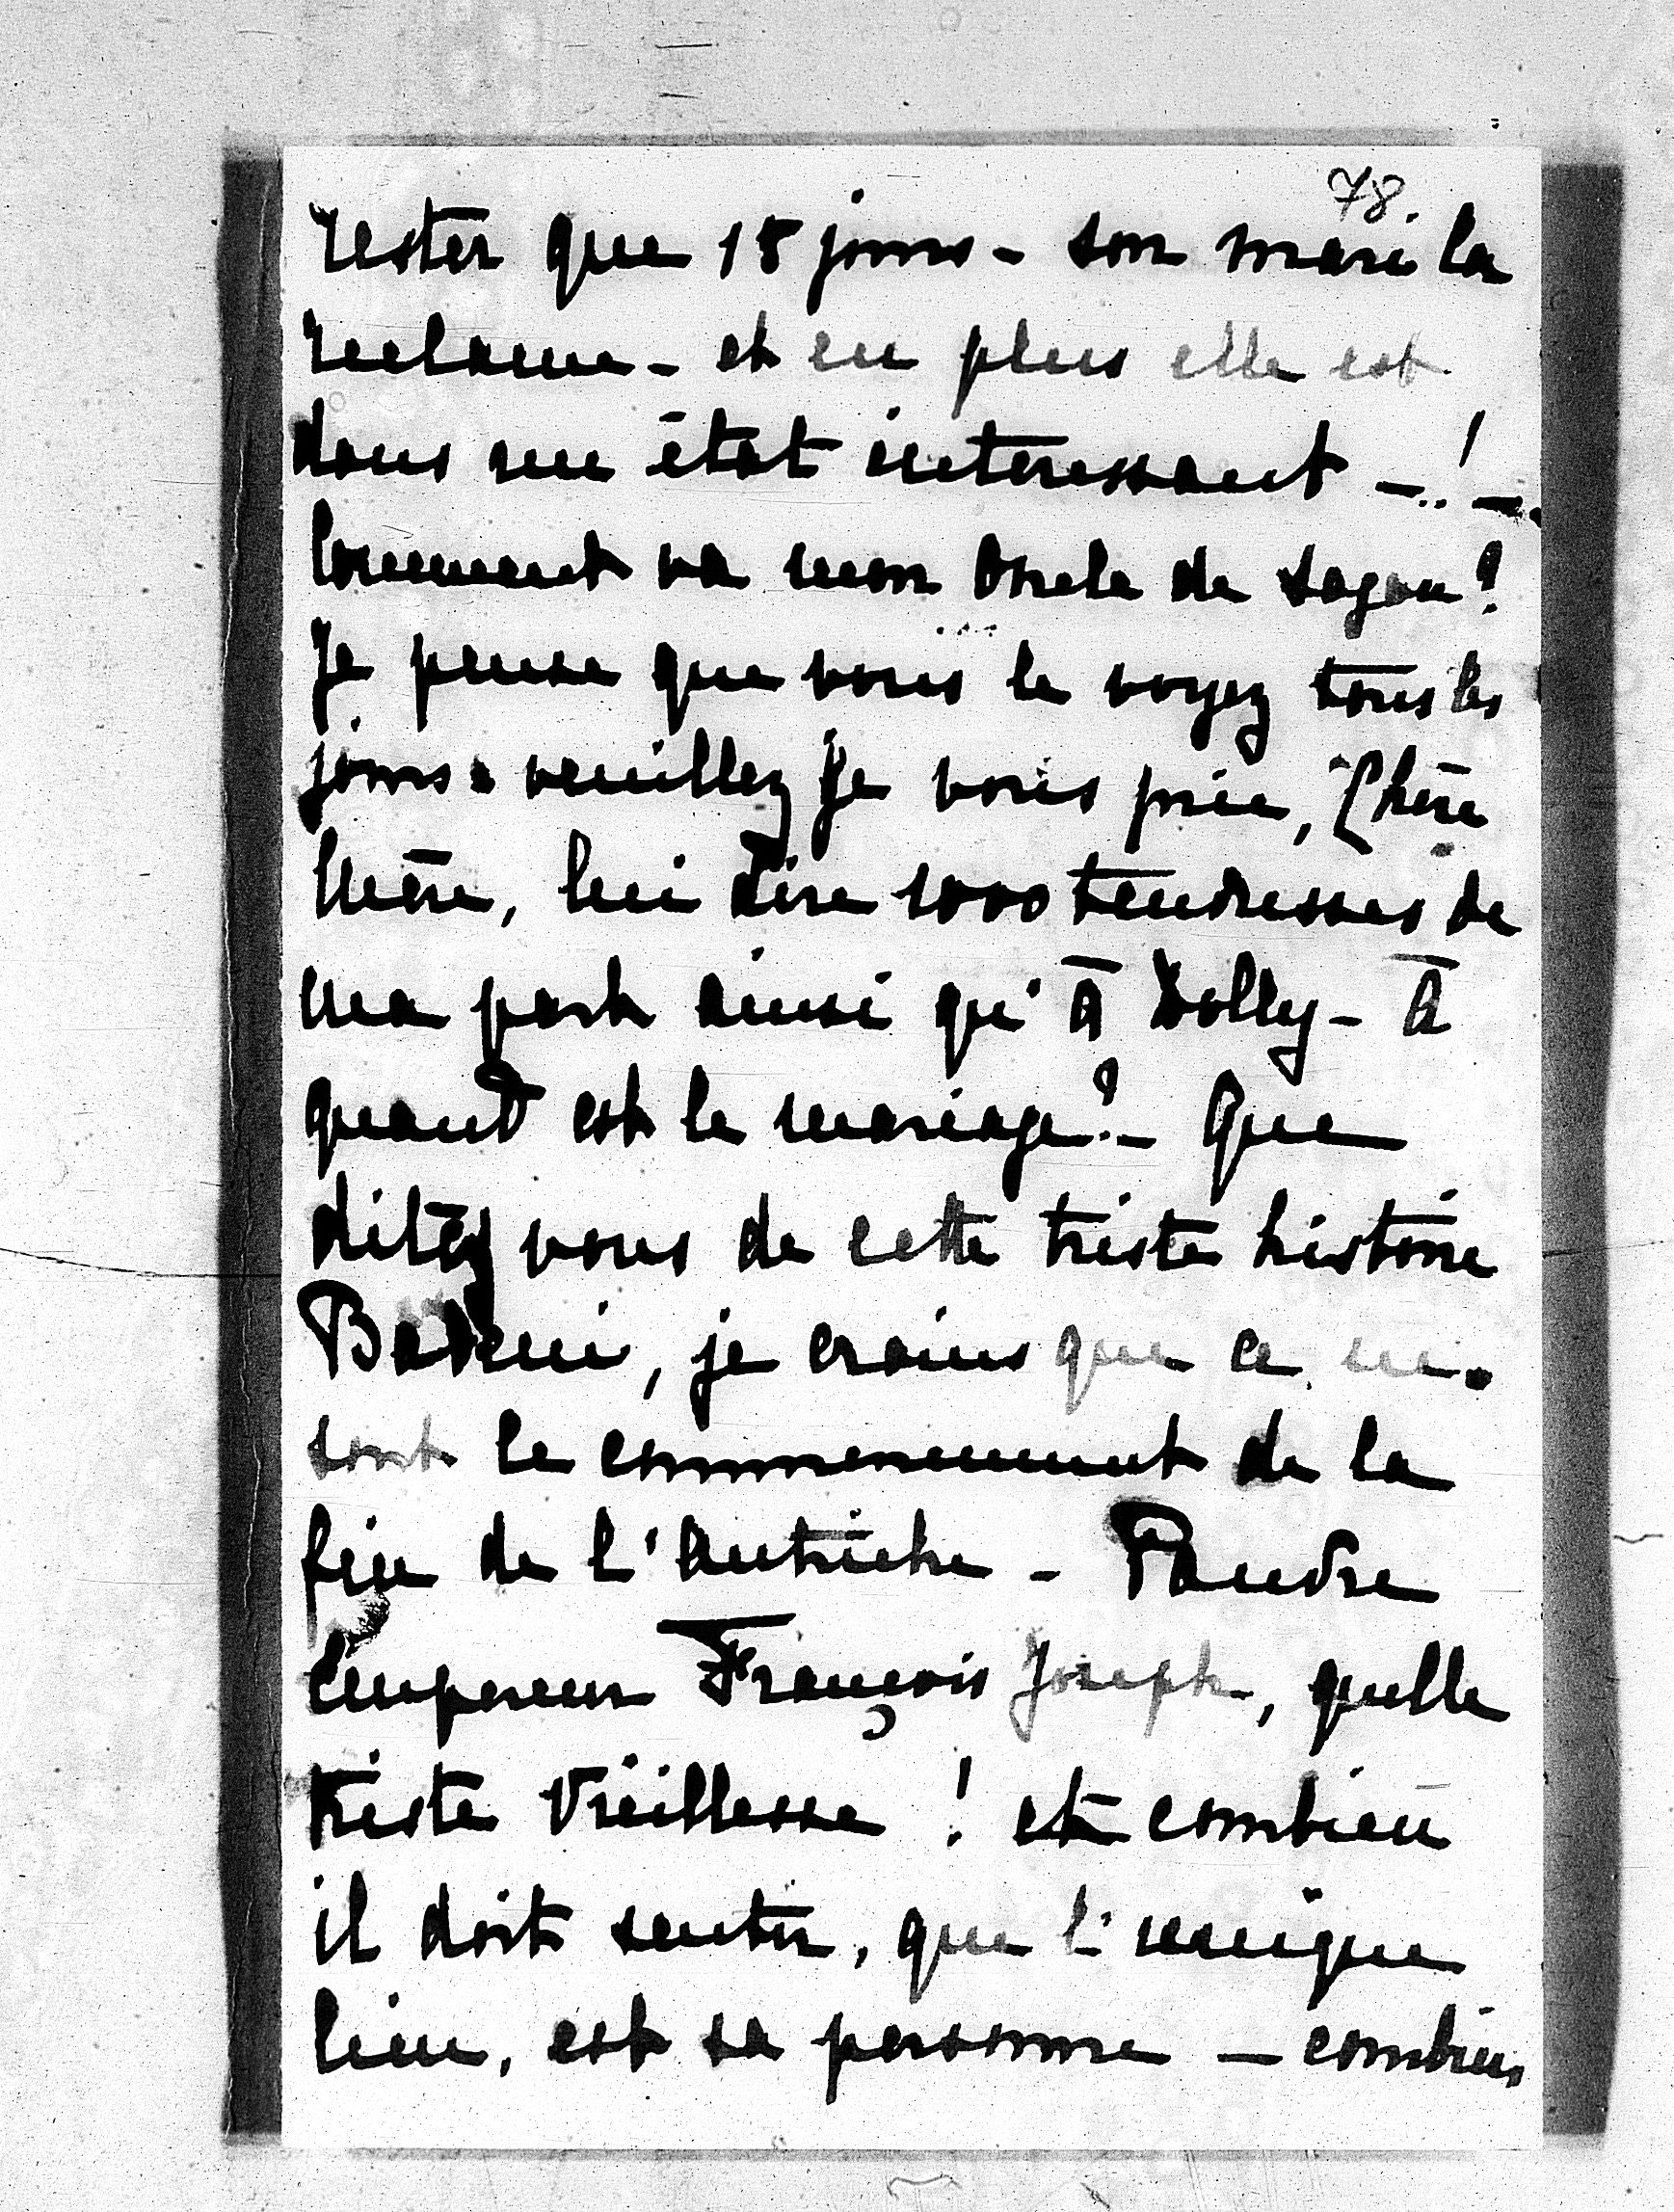 78.
rester que 15 jours - son mari la
reclame - et en plus elle est
dans un état interessant - .. ! -
Comment va mon Oncle de Sagan ?
Je pense que vous le voyez tous les
jours - veuillez je vous prie, Chère
Mère, lui dire 1000 tendresses de
ma part ainsi qu'à Dolly - à
quand est le mariage ? - Que
dites vous de cette triste histoire
Badeni, je crains que ce ne
soit le commencement de la
fin de l'Autriche - Pauvre
Empereur François Joseph, quelle
triste vieillesse ! et combien
il doit sentir, que l'unique
lien, est sa personne - combien